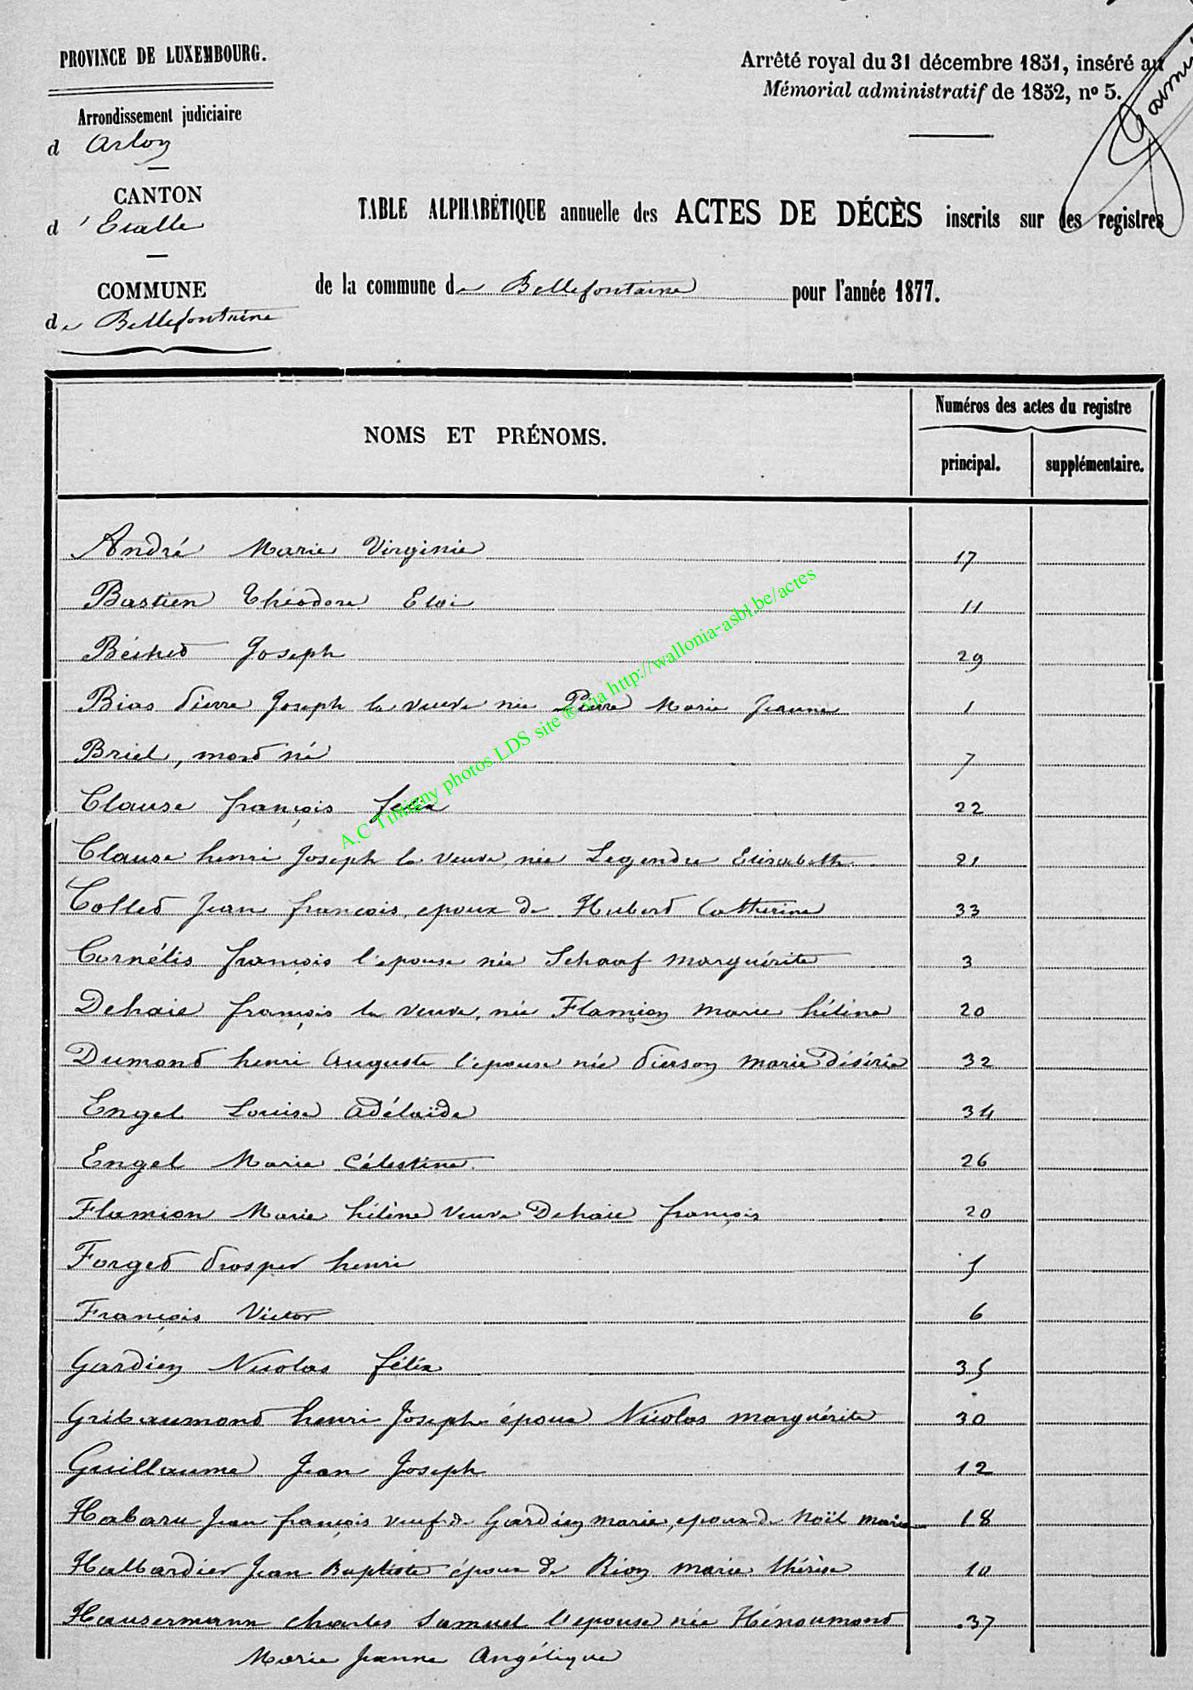 PROVINCE DE LUXEMBOURG.
Arrêté royal du 31 décembre 1851, inséré au
Mémorial administratif de 1852, nº 5.
Arrondissement judiciaire
d Arlon
CANTON
d 'Etalle
TABLE ALPHABÉTIQUE annuelle des ACTES DE DÉCÈS inscrits sur les registres
COMMUNE
de Bellefontaine
de la commune de Bellefontaine pour l'année 1877.
NOMS ET PRÉNOMS.
Numéros des actes du registre
principal. supplémentaire.
André Marie Virginie 17
Bastien Théodore Eloi 11
Béchet Joseph 29
Bias Pierre Joseph la veuve née Pierre Marie Jeanne 1
Briel, mort né 7
Clause françois félix 22
Clause henri Joseph la veuve, née Legendre Elisabeth 21
Collet Jean françois, epoux de Hubert Catherine 33
Cornélis françois l'epouse née Schaaf marguérite 3
Dehaie françois la veuve, née Flamion marie hélène 20
Dumont henri Auguste l'epouse née Pierson marie désirée 32
Engel Louise Adélaïde 34
Engel Marie Célestine 26
Flamion Marie hélène veuve Dehaie françois 20
Forget Prosper henri 5
François Victor 6
Gardien Nicolas félix 35
Gribaumont henri Joseph époux Nicolas marguérite 30
Guillaume Jean Joseph 12
Habaru Jean françois veuf de Gardien marie, epoux de Noël marie 18
Halbardier Jean Baptiste époux de Rion marie thérèse 10
Hausermann charles Samuel l'epouse née Hénoumont 37
Marie Jeanne Angélique
A.C Tintigny photos LDS site ® via http://wallonia-asbl.be/actes